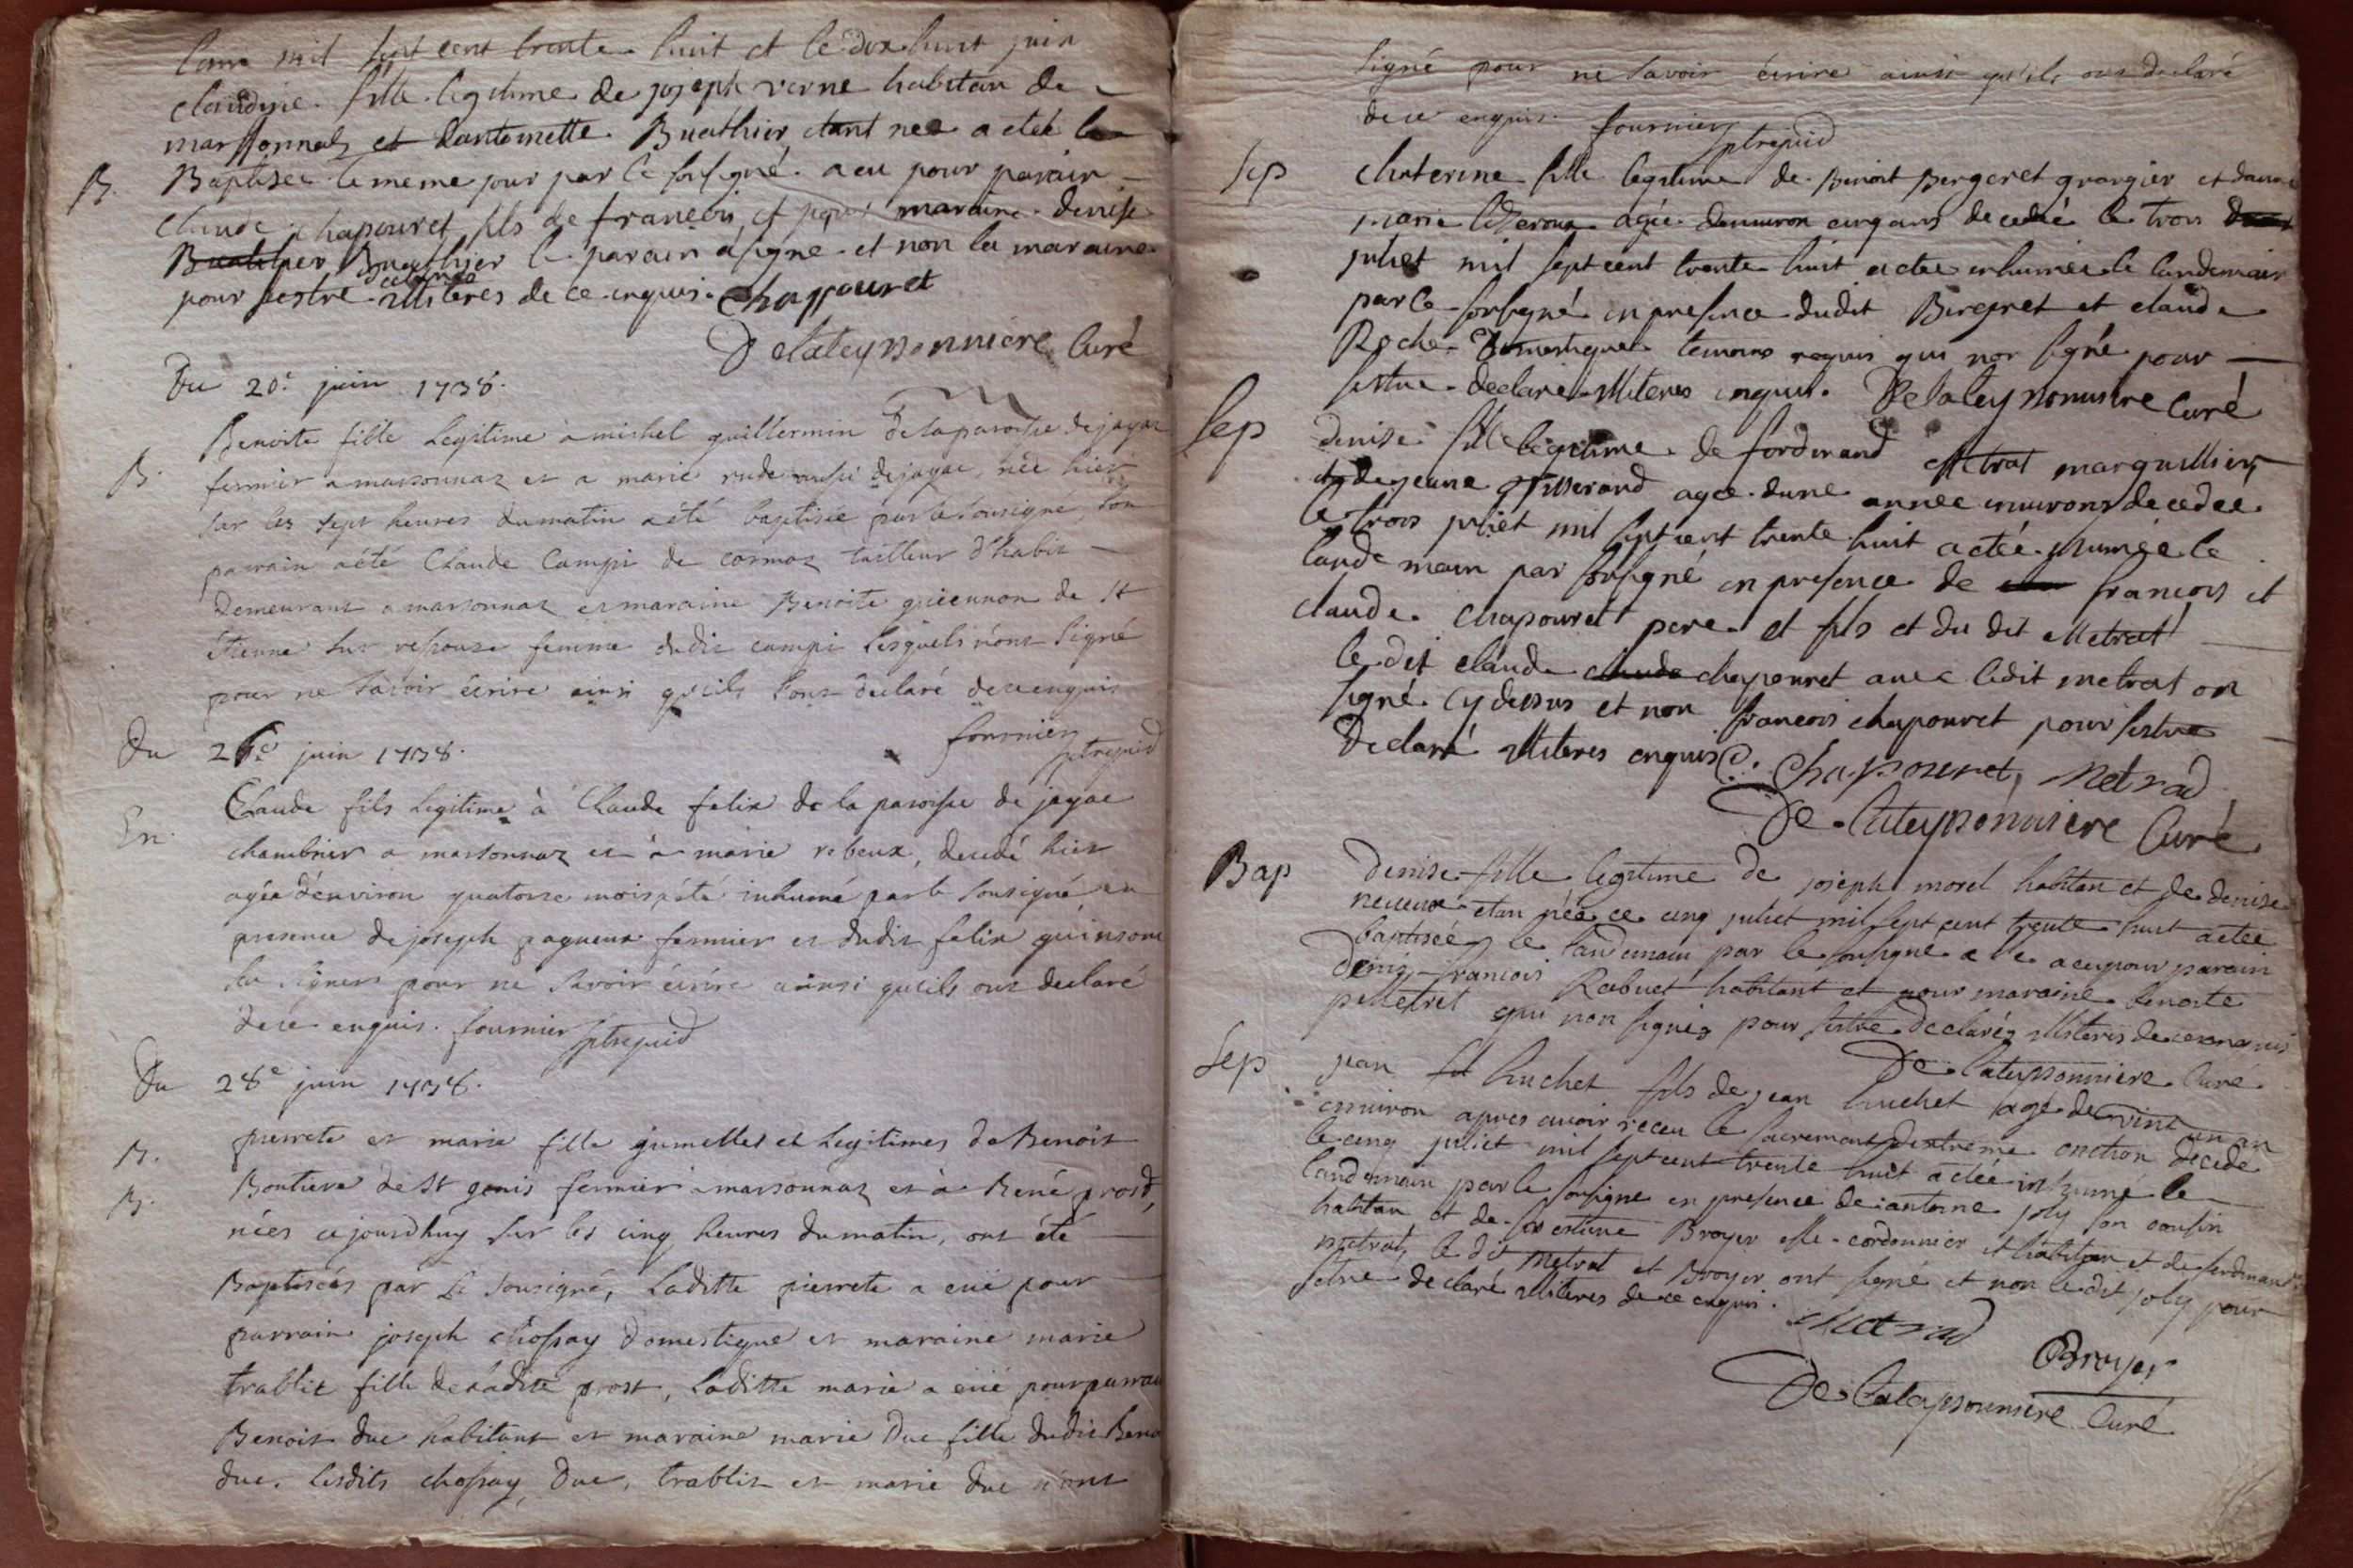 Lann mil sept cent trente huit et le dix huit juin
claudine fille legitime de joseph verne habitan de
marssonnas et dantoinette Buathier etant nee a eté
B. Baptisée le meme jour par le soussigné a eu pour parain
claude chapouret fils de francois et pour maraine denise
Buathier Buathier le parain a signe et non la maraine
pour sestre declarée illiteres de ce enquis. Chappouret
Delateyssonniere Curé
Du 20e juin 1738.
Benoite fille Legitime a michel guillermin de la paroisse de jayac
B. fermier a marsonnaz et a marie rude aussi de jayac, née hier
sur les sept heures du matin a été baptisée par le sousigné, son
parrain a été Claude Campi de cormoz tailleur d'habit
demeurant a marsonnaz et maraine Benoite guiennon de St
étienne sur ressouze femme dudit campi lesquels n'ont signé
pour ne savoir écrire ainsi qu'ils l'ont declaré de ce enquis
fournier
Du 26e juin 1738.
Claude fils Legitime à Claude felix de la paroisse de jayac
En. chambrier a marsonnaz et à marie robeux, decedé hier
agée d'environ quatorze mois a été inhumé par le sousigné, en
presence de joseph pagneux fermier et dudit felix qui n'ont
su signer pour ne savoir écrire ainsi qu'ils ont declaré
de ce enquis. fournier
Du 28e juin 1738.
B. pierrete et marie fille jumelles et Legitimes de Benoit
B. Boutiere de St genis fermier a marsonnaz et à René prost,
nées ce jourdhuy sur les cinq heures du matin, ont été
Baptisées par Le sousigné, Laditte pierrete a eüe pour
parrain joseph chossay domestique et maraine marie
trablit fille de ladite prost, laditte marie a eüe pour parrain
Benoit duc habitant et maraine marie Duc fille dudit Benoit
duc. lesdits chossay, Duc, trablit et marie duc n'ont
signé pour ne savoir écrire ainsi qu'ils ont declaré
de ce enquis. fournier
Sep Chaterine fille legitime de Benoit Bergeret grangier et danne
marie agée denviron cinq ans decedé le trois
juliet mil sept cent trente huit a etée inhumée le landemain
par le sousigné en presence dudit Bergeret et claude
Roche Domestique temoins requis qui non signé pour
sestre declaré illiteres enquis. Delateyssonniere Curé
Sep denise fille legitime de ferdinand Metrat marguillier
et de jeanne tisserand agée dune année environs decedee
le trois juliet mil sept cent trente huit a etée inhumée le
landemain par sousigné en presence de francois et
claude chapouret pere et fils et du dit Metrat
le dit claude claude chapouret avec ledit metrat on
signé cy dessus et non francois chapouret pour sestre
declaré illiteres enquis. Chapouret, Metrad
De Lateyssonniere Curé
Bap denise fille legitime de joseph morel habitan et de denise
neveux etan née ce cinq juliet mil sept cent trente huit a etée
baptisée le landemain par le sousigne elle a eu pour parain
denis francois Rabuet habitant et pour maraine benoite
qui non signés pour sestre declarés illiteres de ce enquis
De Lateyssonniere Curé
Sep jean huchet fils de jean huchet agé de vint un an
environ apres avoir receu le sacrement dextreme onction decede
le cinq juliet mil sept cent trente huit a etée inhumé le
landemain par le sousigne en presence de antoine joly son cousin
habitan et de Broyer cordonnier et habitan et de ferdinand
metrat, le dit Metrat et Broyer ont signé et non le dit joly pour
setre declaré illiteres de ce enquis.
Metrad
Broyer
De Lateyssonniere Curé